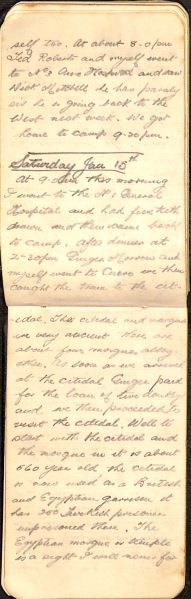 self too. At about 8.0pm
Ted Roberts and myself went
to No 2 Aux Hospital and saw
Nick Mitchell he has paraly
sis he is going back to the
West next week. We got
home to camp 9.30pm.
Saturday Jan 15th
At 9.0am this morning
I went to the No 1 General
Hospital and had five teeth
drawn and then came back
to camp. After dinner at
2-30pm Ginger and
myself went to Cairo we then
caught the tram to the cit-
idel. The citedal and mosques
are very ancient there are
about four mosques altog-
ether. As soon as we arrived
at the citedal Ginger paid
for the loan of two donkeys
and we then proceeded to
visit the citedal. Well to
start with the citedal and
the mosque in it is about
660 year old the citedal
is now used as a British
and Egyptian garrison it
has 200 Turkish prisoners
imprisoned there. The
Egyptian mosque or temple
is a sight I will never for